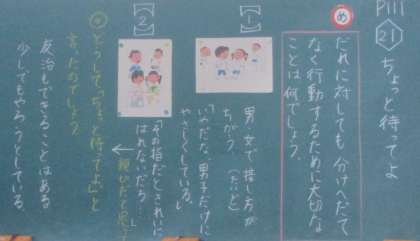 P111
21 ちょっと待ってよ
め
だれに対しても分けへだて
なく行動するために大切な
ことは何でしょう。
1
男女で推し方が
ちがう。
「いやだな。男子だけに
やさしくしている。」
2
「その指だとされに
はれないだろ…」
どうして「ちょっと待ってよ」と
言ったのでしょう。
友治もできることはある
少しでもやろうとしている。